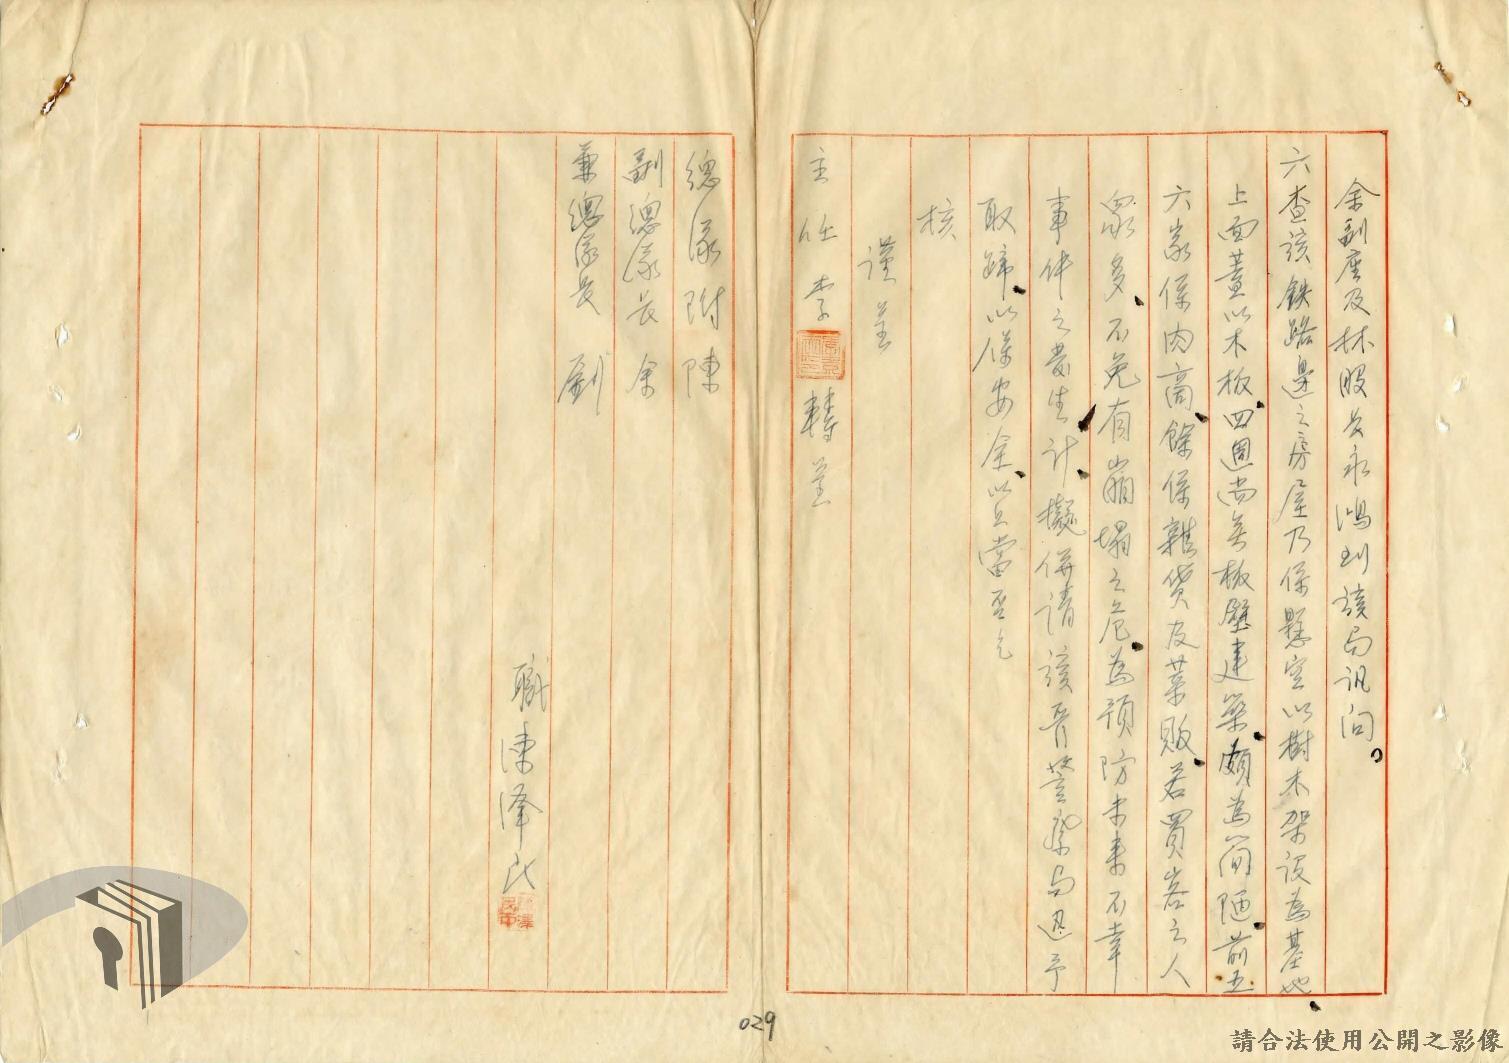 余副座及林股長永鴻到該局訊问。
六查該鉄路邊之房屋乃係懸空以樹木架设為基地、
上面蓋以木板、四週尚無板壁建築、頗為简陋、前五
六家係肉商、餘係雜货及菜販、若買客之人
衆多、不免有崩塌之危、為預防未来不幸
事件之發生計、擬併請該管警察局迅予
取締、以保安全、以上當否乞
核
謹呈
主任李 轉呈
總隊附 陳
副總隊長 余
兼總隊長 劉
職 陳澤民
029
請合法使用公開之影像